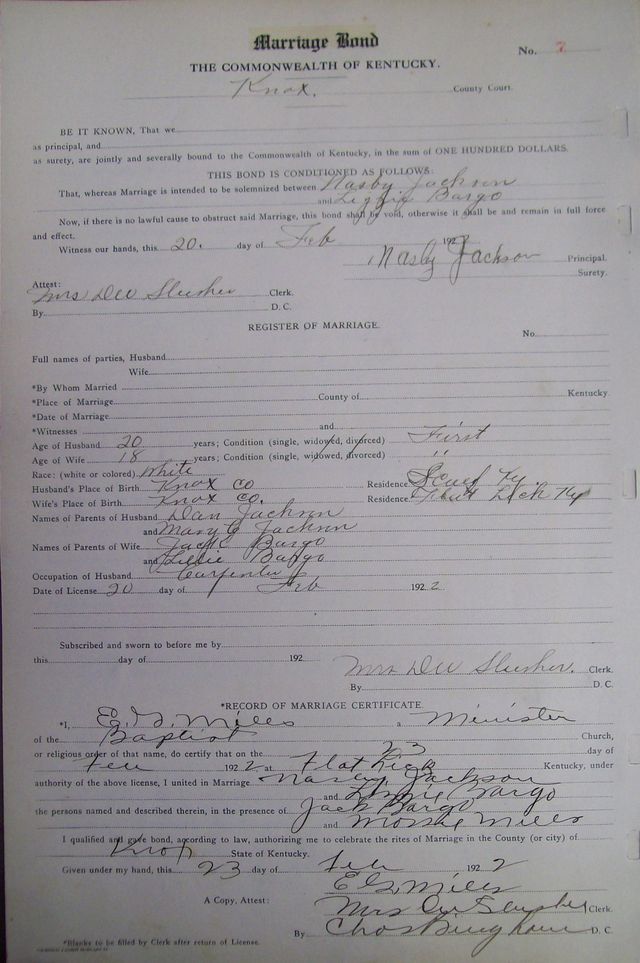 Marriage Bond
No. 7
THE COMMONWEALTH OF KENTUCKY.
Knox. County Court.
BE IT KNOWN, That we
as principal, and
as surety, are jointly and severally bound to the Commonwealth of Kentucky, in the sum of ONE HUNDRED DOLLARS.
THIS BOND IS CONDITIONED AS FOLLOWS:
That, whereas Marriage is intended to be solemnized between Nasby Jackson
and Lizzie Bargo
Now, if there is no lawful cause to obstruct said Marriage, this bond shall be void, otherwise it shall be and remain in full force
and effect.
Witness our hands, this 20. day of Feb 1922
Nasby Jackson Principal.
Surety.
Attest:
Mrs Dew Slusher Clerk.
By D. C.
REGISTER OF MARRIAGE.
No.
Full names of parties, Husband
Wife
*By Whom Married
*Place of Marriage County of Kentucky.
*Date of Marriage
*Witnesses and
Age of Husband 20 years; Condition (single, widowed, divorced) First
Age of Wife 18 years; Condition (single, widowed, divorced) "
Race: (white or colored) White
Husband's Place of Birth Knox Co Residence Ky.
Wife's Place of Birth Knox Co. Residence Flat Lick Ky
Names of Parents of Husband Dan Jackson
and Mary C Jackson
Names of Parents of Wife Bargo
and Bargo
Occupation of Husband Carpenter
Date of License 20 day of Feb 1922
Subscribed and sworn to before me by
this day of 192
Mrs Dew Slusher. Clerk.
By D. C.
*RECORD OF MARRIAGE CERTIFICATE.
*I, E. G. Mills a Minister
of the Baptist Church,
or religious order of that name, do certify that on the 23 day of
Feb 1922 at Flat Lick Kentucky, under
authority of the above license, I united in Marriage Nasby Jackson
and Lizzie Bargo
the persons named and described therein, in the presence of Jack Bargo
and Mossie Mills
I qualified and gave bond, according to law, authorizing me to celebrate the rites of Marriage in the County (or city) of
Knox State of Kentucky.
Given under my hand, this 23 day of Feb 1922
E G. Mills
A Copy, Attest: Mrs Dew Slusher Clerk.
By Chas Bingham D. C.
*Blanks to be filled by Clerk after return of License.